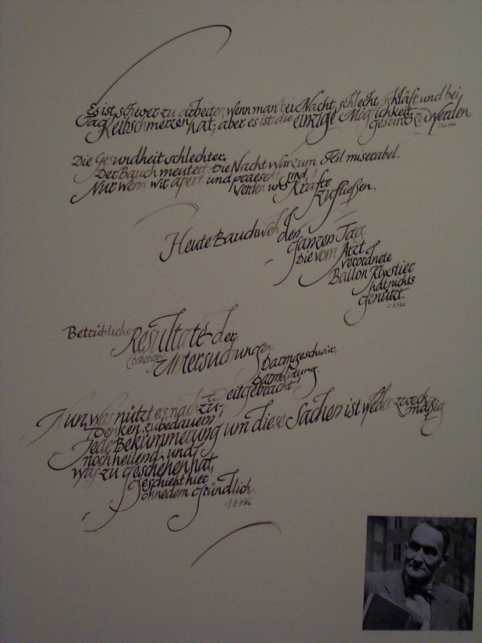 Es ist schwer zu arbeiten, wenn man bei Nacht schlecht schläft und bei
Tag Leibschmerzen hat, aber es ist die einzige Möglichkeit
gesund zu werden
Die Gesundheit schlechter.
Der Bauch meutert. Die Nacht war zum Teil miserabel.
Nur wenn wir apert und
werden uns Kräfte
zufließen.
Heute Bauchweh den
ganzen Tag
Die vom Arzt
verordnete
Ballon Klystier
hat nichts
genützt.
Betrübliche
Resultate der
Untersuchungen
Darmgeschwür,
Darmblutung
Nun, was nützt es
Denken, zu bedauern
Jede Bekümmerung um diese Sachen ist weder zweck
noch heilend, und mäßig
was zu geschehen hat,
geschieht hier
ohnedem gründlich.